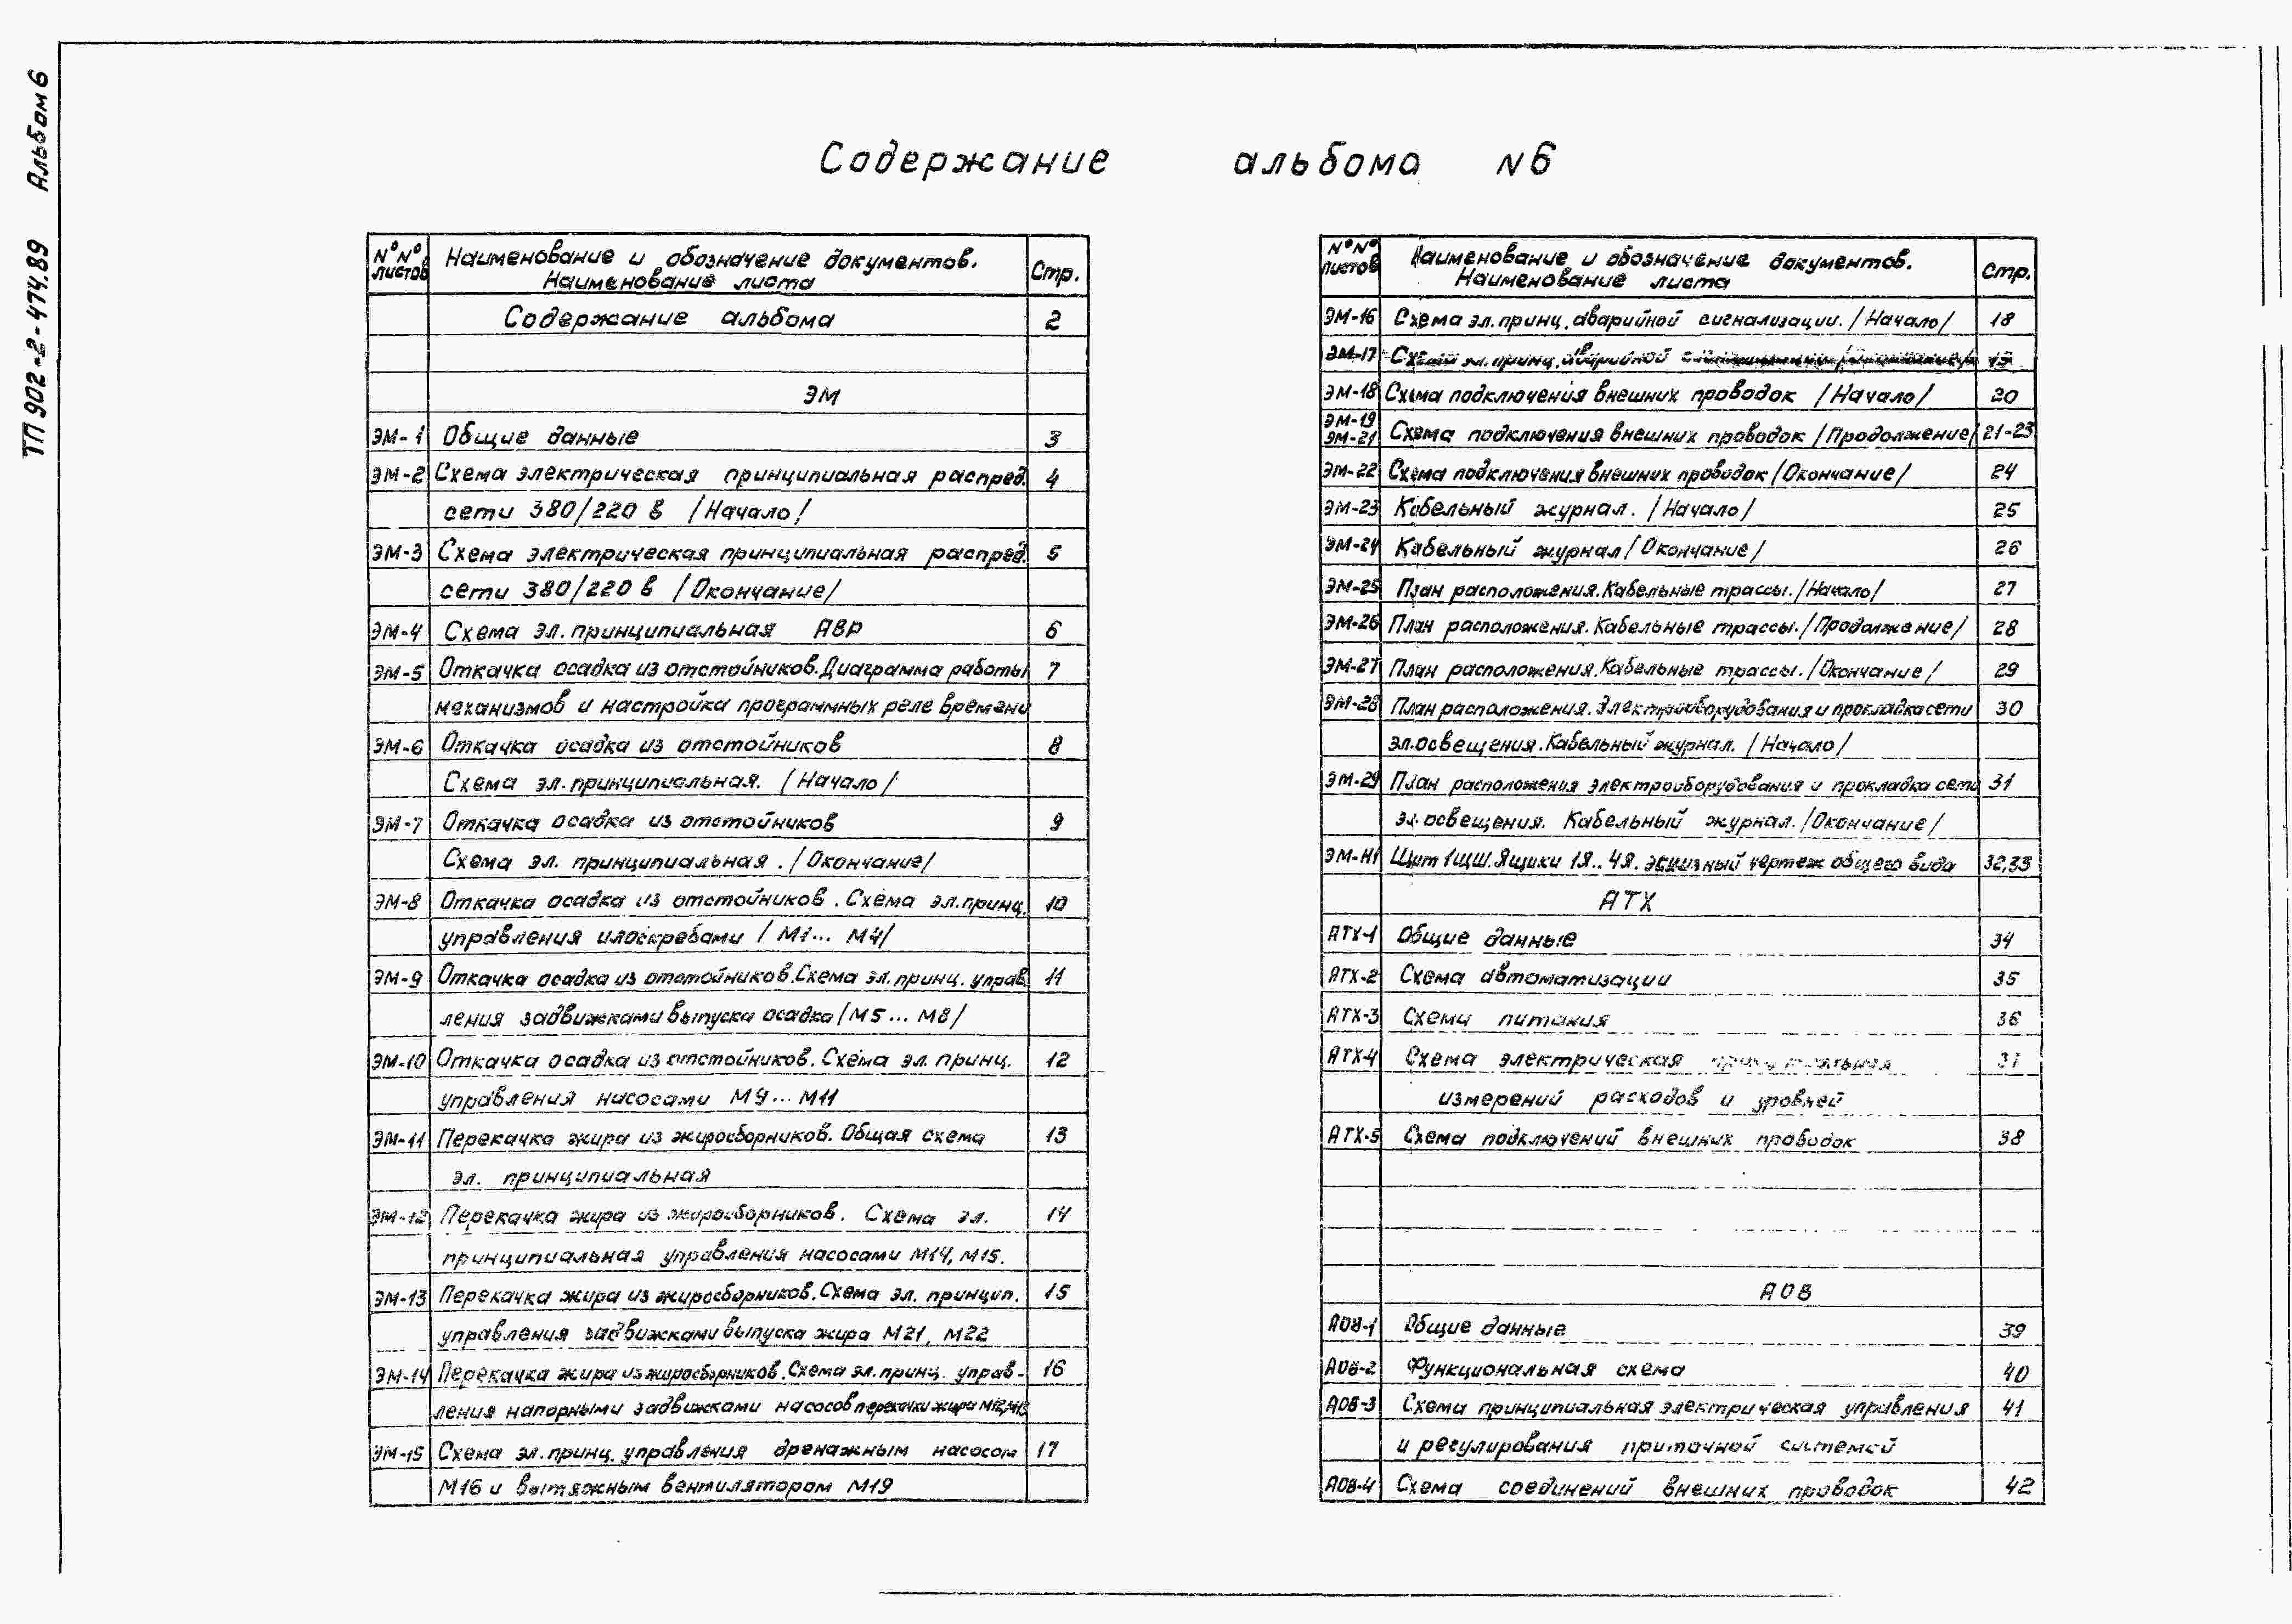 ТП 902-2-474.89 Альбом 6
Содержание альбома N6
N°N° листов
Наименование и обозначение документов.
Наименование листа
Стр.
Содержание альбома 2
ЭМ
ЭМ-1 Общие данные 3
ЭМ-2 Схема электрическая принципиальная распред. 4
сети 380/220 в /Начало/
ЭМ-3 Схема электрическая принципиальная распред. 5
сети 380/220 в /Окончание/
ЭМ-4 Схема эл. принципиальная АВР 6
ЭМ-5 Откачка осадка из отстойников. Диаграмма работы 7
механизмов и настройка программных реле времени
ЭМ-6 Откачка осадка из отстойников 8
Схема эл. принципиальная. /Начало/
ЭМ-7 Откачка осадка из отстойников 9
Схема эл. принципиальная. /Окончание/
ЭМ-8 Откачка осадка из отстойников. Схема эл. принц. 10
управления илоскребами /М1... М4/
ЭМ-9 Откачка осадка из отстойников. Схема эл. принц. управ 11
ления задвижками выпуска осадка /М5... М8/
ЭМ-10 Откачка осадка из отстойников. Схема эл. принц. 12
управления насосами М9... М11
ЭМ-11 Перекачка жира из жиросборников. Общая схема 13
эл. принципиальная
ЭМ-12 Перекачка жира из жиросборников. Схема эл. 14
принципиальная управления насосами М14, М15.
ЭМ-13 Перекачка жира из жиросборников. Схема эл. принцип. 15
управления задвижками выпуска жира М21, М22
ЭМ-14 Перекачка жира из жиросборников. Схема эл. принц. управ- 16
ления напорными задвижками насосов перекачки жира
ЭМ-15 Схема эл. принц. управления дренажным насосом 17
М16 и вытяжным вентилятором М19
N°N° листов
Наименование и обозначение документов.
Наименование листа
Стр.
ЭМ-16 Схема эл. принц. аварийной сигнализации. /Начало/ 18
ЭМ-17 Схема эл. принц. аварийной 19
ЭМ-18 Схема подключения внешних проводок /Начало/ 20
ЭМ-19 ЭМ-21 Схема подключения внешних проводок /Продолжение/ 21-23
ЭМ-22 Схема подключения внешних проводок /Окончание/ 24
ЭМ-23 Кабельный журнал. /Начало/ 25
ЭМ-24 Кабельный журнал /Окончание/ 26
ЭМ-25 План расположения. Кабельные трассы. /Начало/ 27
ЭМ-26 План расположения. Кабельные трассы. /Продолжение/ 28
ЭМ-27 План расположения. Кабельные трассы. /Окончание/ 29
ЭМ-28 План расположения. Электрооборудования и прокладка сети 30
эл. освещения. Кабельный журнал. /Начало/
ЭМ-29 План расположения электрооборудования и прокладка сети 31
эл. освещения. Кабельный журнал. /Окончание/
ЭМ-Н1 Щит 1ЩШ. Ящики 1Я.. 4Я. Эскизный чертеж общего вида 32,33
АТХ
АТХ-1 Общие данные 34
АТХ-2 Схема автоматизации 35
АТХ-3 Схема питания 36
АТХ-4 Схема электрическая 37
измерений расходов и уровней
АТХ-5 Схема подключений внешних проводок 38
АОВ
АОВ-1 Общие данные 39
АОВ-2 Функциональная схема 40
АОВ-3 Схема принципиальная электрическая управления 41
и регулирования приточной системой
АОВ-4 Схема соединений внешних проводок 42